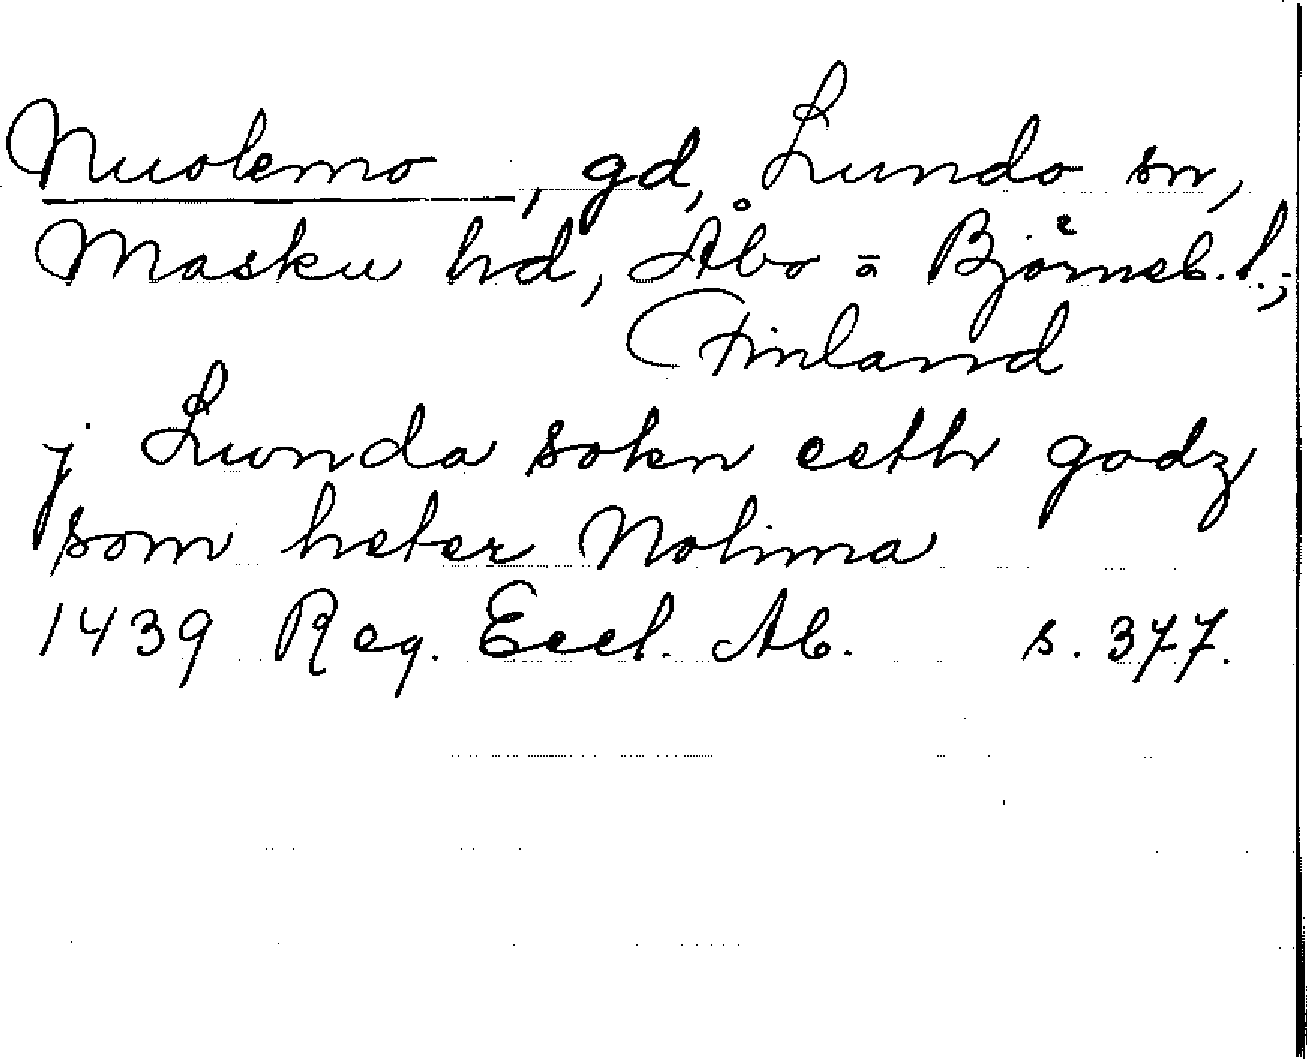 Nuolemo, gd, Lundo sn,
Masku hd, Åbo = Björneb. l.;
Finland
j Lunda sokn eeth godz
som heter Nolima
1439 Reg. Eccl. Ab. s. 377.